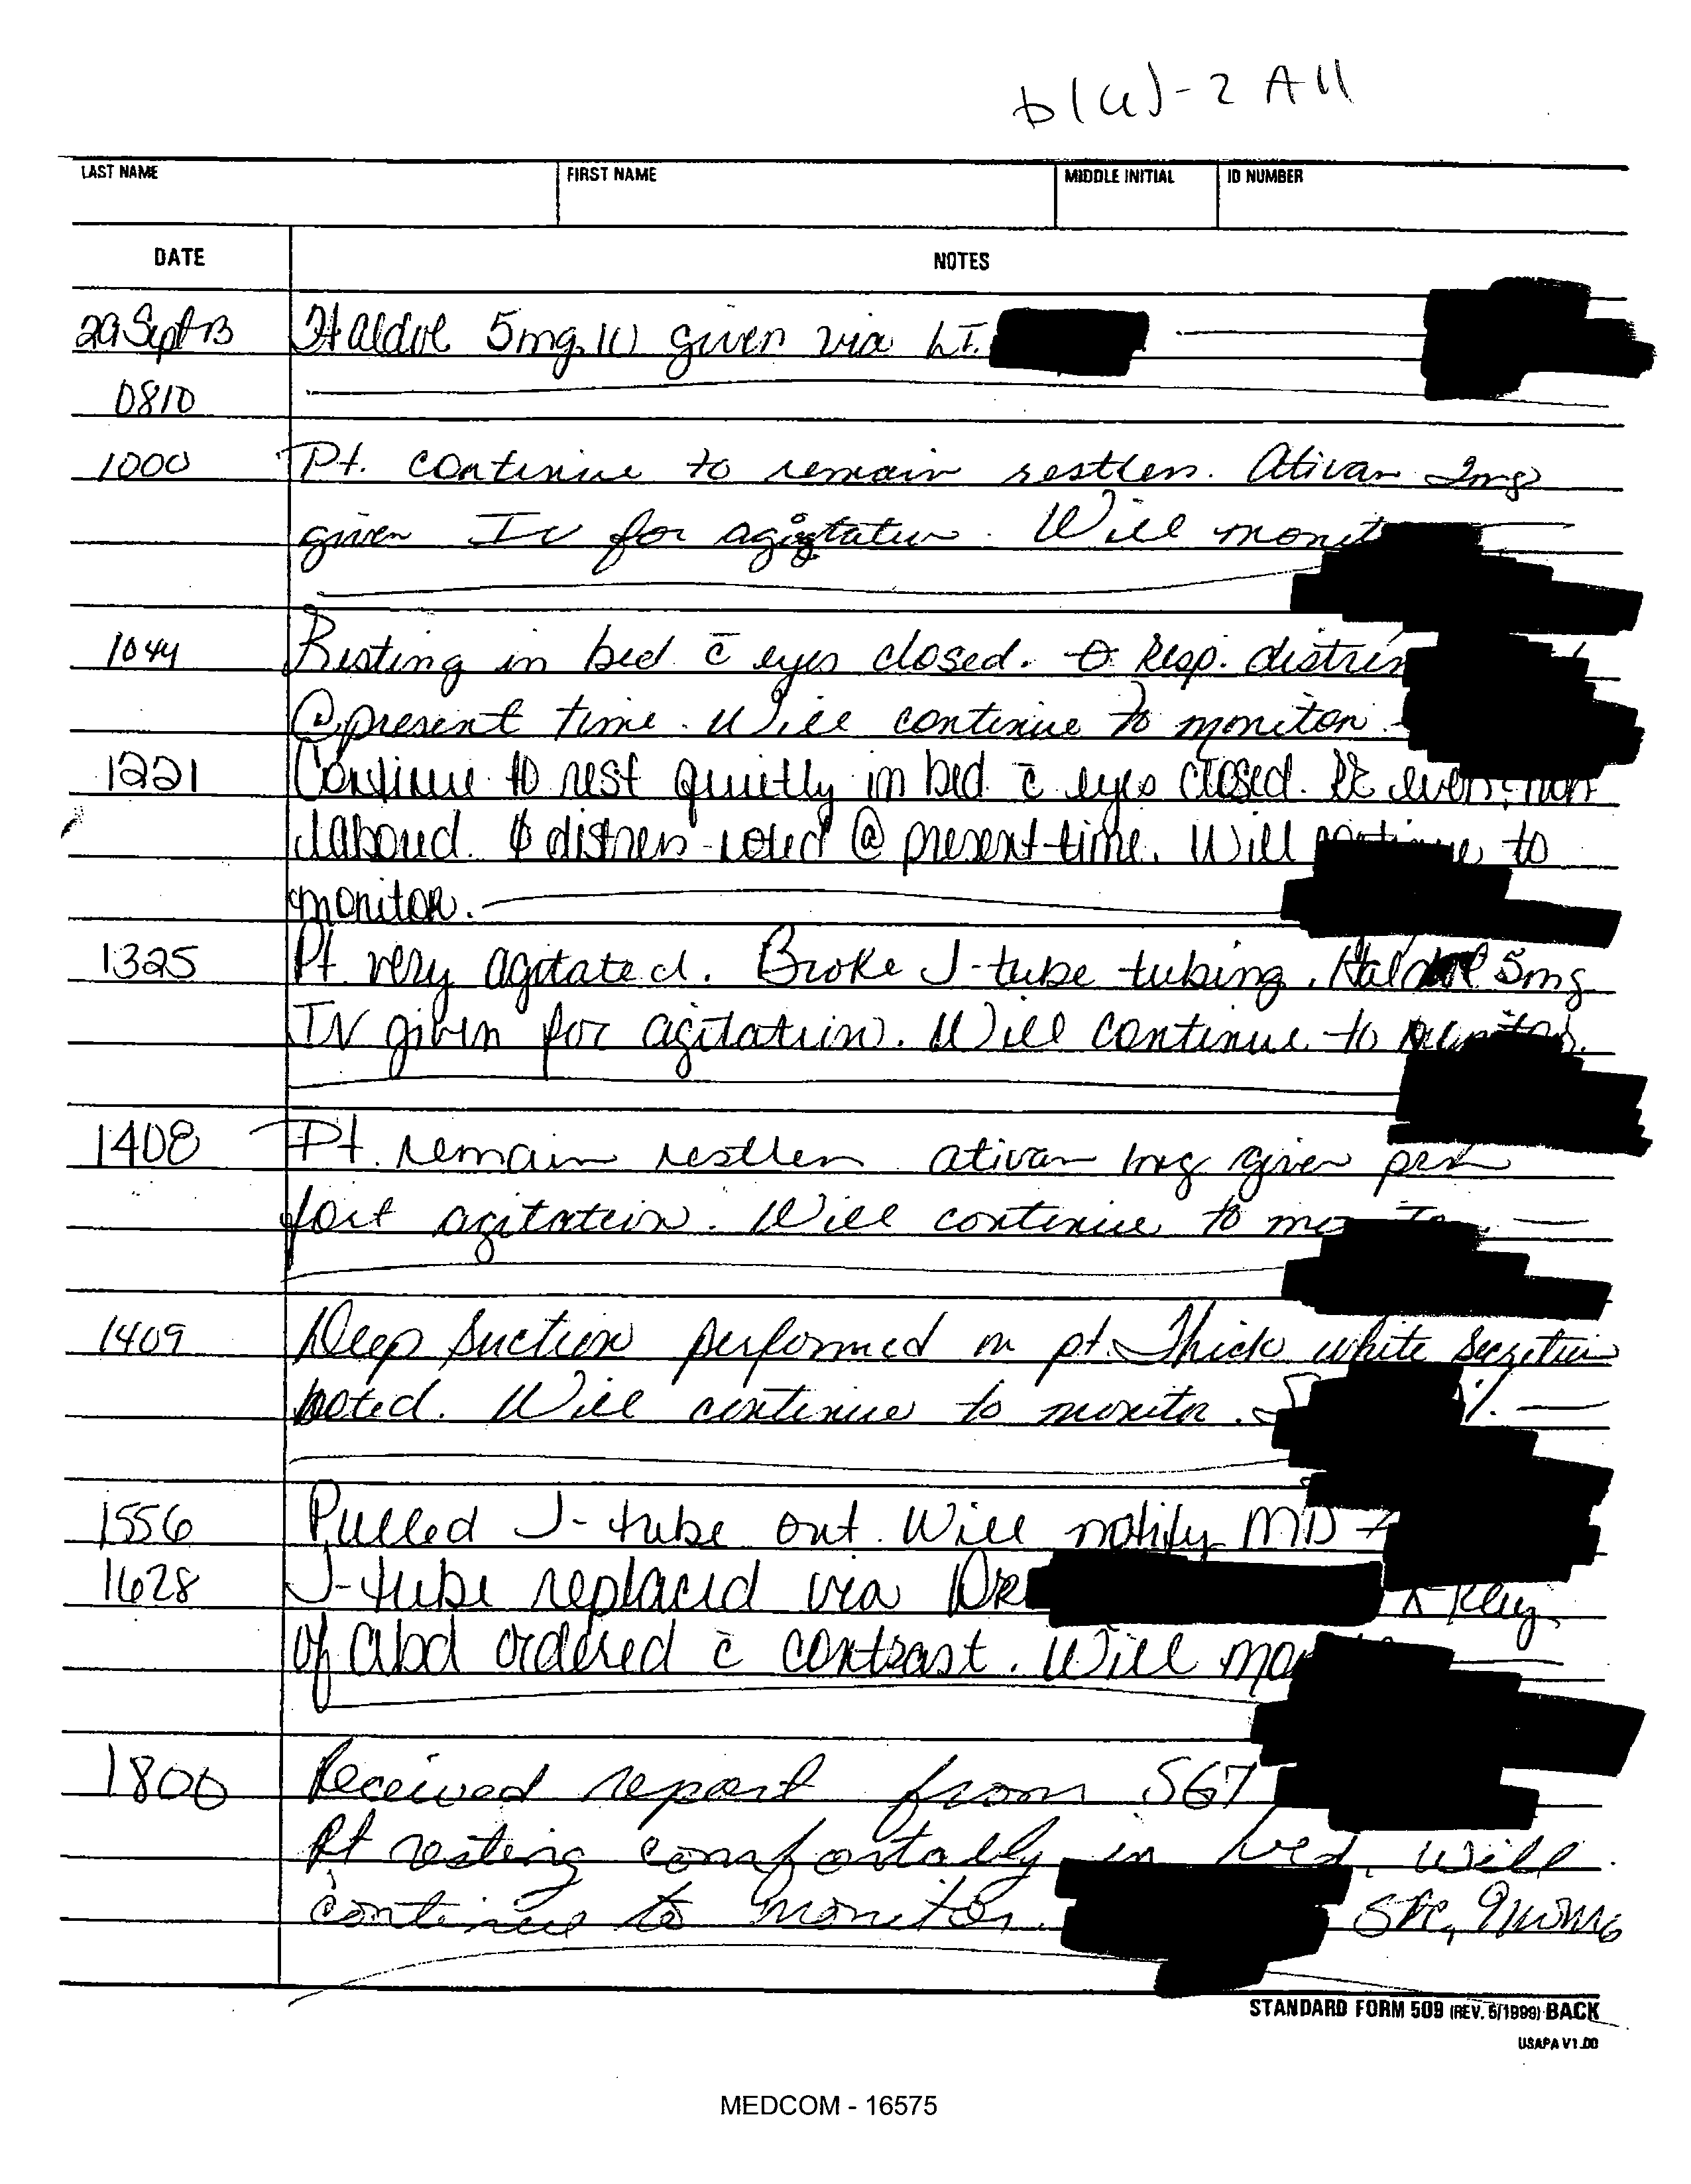 b(6)-2 All
LAST NAME FIRST NAME MIDDLE INITIAL ID NUMBER
DATE NOTES
29 Sept 03 Haldol 5mg IV given via LT.
0810
1000 Pt. continue to remain restless. Ativan 2mg
given IV for agigtation. Will monit
1044 Resting in bed c̄ eyes closed. Ø Resp. distress
@ present time. Will continue to monitor.
1221 Continue to rest quietly in bed c̄ eyes closed. even, non
labored. Ø distress noted @ present time. Will continue to
monitor.
1325 Pt very agitated. Broke J-tube tubing. Haldol 5mg
IV given for agitation. Will continue to monitor.
1408 Pt. remain restless ativan 1mg given prn
for agitation. Will continue to mo
1409 Deep Suction performed on pt. Thick white secretion
noted. Will continue to monitor. %.
1556 Pulled J-tube out. Will notify MD
1628 J-tube replaced via DR X-Ray
of abd ordered c̄ contrast. Will mo
1800 Received report from SGT
Pt resting comfortably in bed, will
continue to monitor. SPC,
STANDARD FORM 509 (REV. 5/1999) BACK
USAPA V1.00
MEDCOM - 16575